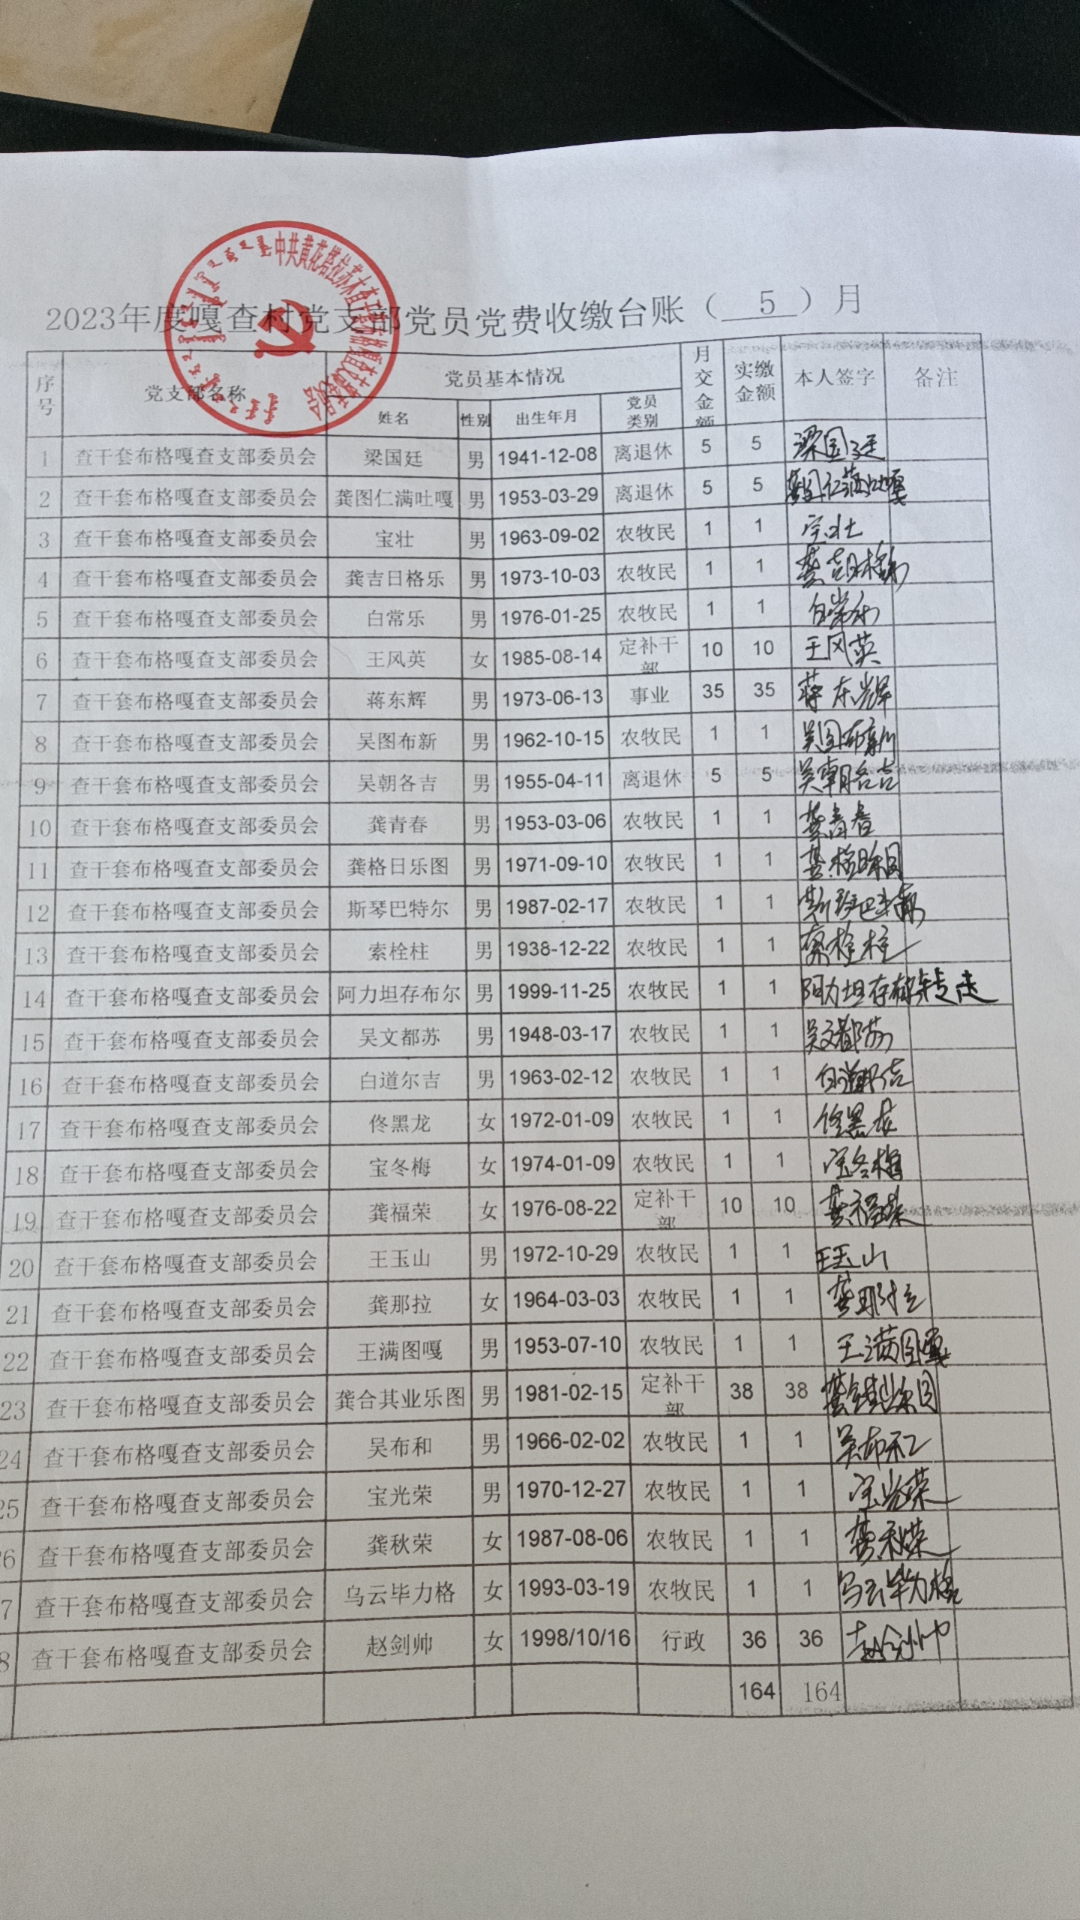 2023年度嘎查村党支部党员党费收缴台账（ 5 ）月
序号 党支部名称 党员基本情况 月交金额 实缴金额 本人签字 备注
姓名 性别 出生年月 党员类别
1 查干套布格嘎查支部委员会 梁国廷 男 1941-12-08 离退休 5 5 梁国廷
2 查干套布格嘎查支部委员会 龚图仁满吐嘎 男 1953-03-29 离退休 5 5 龚图仁满吐嘎
3 查干套布格嘎查支部委员会 宝壮 男 1963-09-02 农牧民 1 1 宝壮
4 查干套布格嘎查支部委员会 龚吉日格乐 男 1973-10-03 农牧民 1 1 龚吉日格乐
5 查干套布格嘎查支部委员会 白常乐 男 1976-01-25 农牧民 1 1 白常乐
6 查干套布格嘎查支部委员会 王风英 女 1985-08-14 定补干部 10 10 王风英
7 查干套布格嘎查支部委员会 蒋东辉 男 1973-06-13 事业 35 35 蒋东辉
8 查干套布格嘎查支部委员会 吴图布新 男 1962-10-15 农牧民 1 1 吴图布新
9 查干套布格嘎查支部委员会 吴朝各吉 男 1955-04-11 离退休 5 5 吴朝各吉
10 查干套布格嘎查支部委员会 龚青春 男 1953-03-06 农牧民 1 1 龚青春
11 查干套布格嘎查支部委员会 龚格日乐图 男 1971-09-10 农牧民 1 1 龚格日乐图
12 查干套布格嘎查支部委员会 斯琴巴特尔 男 1987-02-17 农牧民 1 1 斯琴巴特尔
13 查干套布格嘎查支部委员会 索栓柱 男 1938-12-22 农牧民 1 1 索栓柱
14 查干套布格嘎查支部委员会 阿力坦存布尔 男 1999-11-25 农牧民 1 1 阿力坦存布尔 走
15 查干套布格嘎查支部委员会 吴文都苏 男 1948-03-17 农牧民 1 1 吴文都苏
16 查干套布格嘎查支部委员会 白道尔吉 男 1963-02-12 农牧民 1 1 白道尔吉
17 查干套布格嘎查支部委员会 佟黑龙 女 1972-01-09 农牧民 1 1 佟黑龙
18 查干套布格嘎查支部委员会 宝冬梅 女 1974-01-09 农牧民 1 1 宝冬梅
19 查干套布格嘎查支部委员会 龚福荣 女 1976-08-22 定补干部 10 10 龚福荣
20 查干套布格嘎查支部委员会 王玉山 男 1972-10-29 农牧民 1 1 王玉山
21 查干套布格嘎查支部委员会 龚那拉 女 1964-03-03 农牧民 1 1 龚那拉
22 查干套布格嘎查支部委员会 王满图嘎 男 1953-07-10 农牧民 1 1 王满图嘎
23 查干套布格嘎查支部委员会 龚合其业乐图 男 1981-02-15 定补干部 38 38 龚合其业乐图
24 查干套布格嘎查支部委员会 吴布和 男 1966-02-02 农牧民 1 1 吴布和
25 查干套布格嘎查支部委员会 宝光荣 男 1970-12-27 农牧民 1 1 宝光荣
26 查干套布格嘎查支部委员会 龚秋荣 女 1987-08-06 农牧民 1 1 龚秋荣
7 查干套布格嘎查支部委员会 乌云毕力格 女 1993-03-19 农牧民 1 1 乌云毕力格
8 查干套布格嘎查支部委员会 赵剑帅 女 1998/10/16 行政 36 36 赵剑帅
164 164